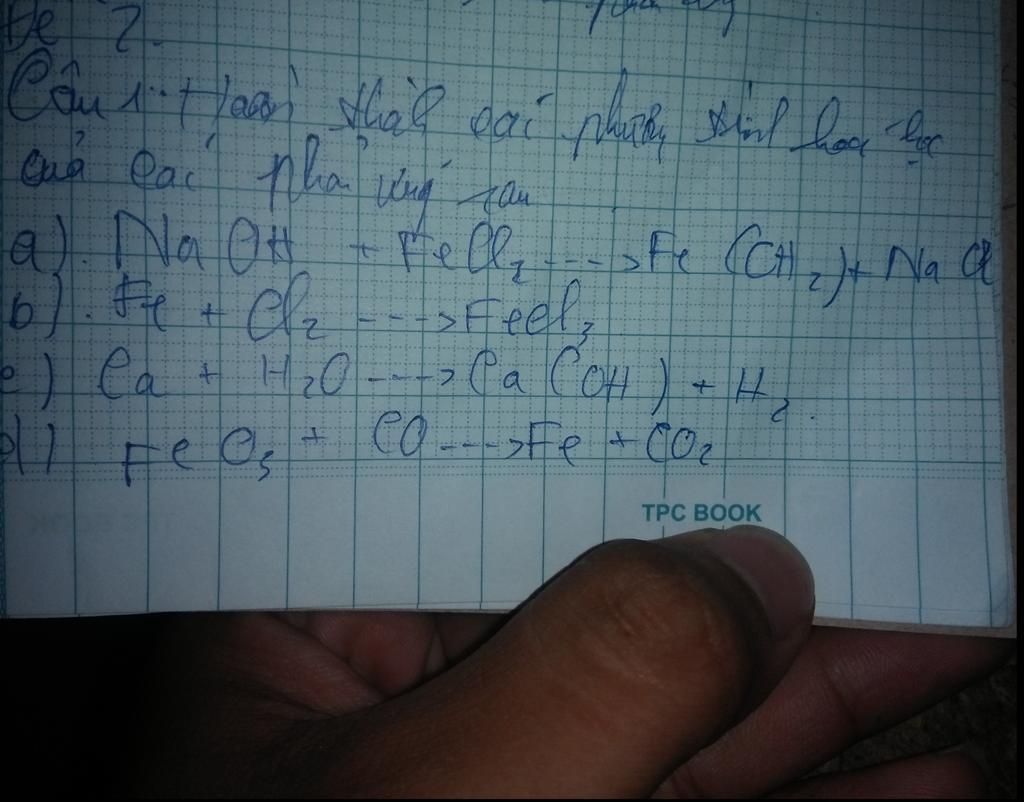 Đề 2.
Câu 1: Hoàn thành các phương trình hoá học
của các phản ứng sau
a). NaOH + FeCl2 ---> Fe (OH2) + NaCl
b). Fe + Cl2 ---> FeCl3
c) Ca + H2O ---> Ca (OH) + H2.
d) FeO3 + CO ---> Fe + CO2
TPC BOOK